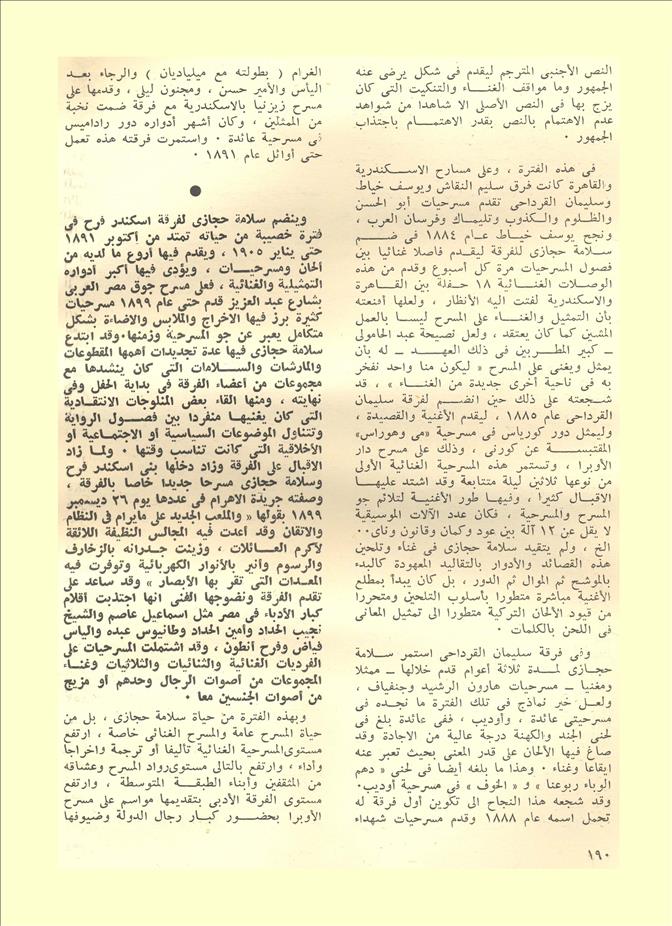 النص الأجنبى المترجم ليقدم فى شكل يرضى عنه
الجمهور وما مواقف الغناء والتنكيت التى كان
يزج بها فى النص الأصلى الا شاهدا من شواهد
عدم الاهتمام بالنص بقدر الاهتمام باجتذاب
الجمهور ٠
فى هذه الفترة ، وعلى مسارح الاسكندرية
والقاهرة كانت فرق سليم النقاش ويوسف خياط
وسليمان القرداحى تقدم مسرحيات أبو الحسن
والظلوم والكذوب وتليماك وفرسان العرب ،
ونجح يوسف خياط عام ١٨٨٤ فى ضم
سلامة حجازى للفرقة ليقدم فاصلا غنائيا بين
فصول المسرحيات مرة كل أسبوع وقدم من هذه
الوصلات الغنائية ١٨ حفلة بين القاهرة
والاسكندرية لفتت اليه الأنظار ، ولعلها أقنعته
بأن التمثيل والغناء على المسرح ليسا بالعمل
المشين كما كان يعتقد ، ولعل نصيحة عبد الحامولى
ــ كبير المطربين فى ذلك العهد ــ له بأن
يمثل ويغنى على المسرح « ليكون منا واحد نفخر
به فى ناحية أخرى جديدة من الغناء » ، قد
شجعته على ذلك حين انضم لفرقة سليمان
القرداحى عام ١٨٨٥ ، ليقدم الأغنية والقصيدة ،
وليمثل دور كورياس فى مسرحية «مى وهوراس»
المقتبسة عن كورنى ، وذلك على مسرح دار
الأوبرا ، وتستمر هذه المسرحية الغنائية الأولى
من نوعها ثلاثين ليلة متتابعة وقد اشتد عليها
الاقبال كثيرا ، وفيها طور الأغنية لتلائم جو
المسرح والمسرحية ، فكان عدد الآلات الموسيقية
لا يقل عن ١٢ آلة بين عود وكمان وقانون وناى٠٠
الخ ، ولم يتقيد سلامة حجازى فى غناء وتلحين
هذه القصائد والأدوار بالتقاليد المعهودة كالبدء
بالموشح ثم الموال ثم الدور ، بل كان يبدأ بمطلع
الأغنية مباشرة متطورا بأسلوب التلحين ومتحررا
من قيود الألحان التركية متطورا الى تمثيل المعانى
فى اللحن بالكلمات ٠
وفى فرقة سليمان القرداحى استمر سلامة
حجازى لمدة ثلاثة أعوام قدم خلالها ــ ممثلا
ومغنيا ــ مسرحيات هارون الرشيد وجنفياف ،
ولعل خير نماذج فى تلك الفترة ما نجده فى
مسرحيتى عائدة ، وأوديب ، ففى عائدة بلغ فى
لحنى الجند والكهنة درجة عالية من الاجادة وقد
صاغ فيها الألحان على قدر المعنى بحيث تعبر عنه
ايقاعا وغناء ٠ وهذا ما بلغه أيضا فى لحنى « دهم
الوباء ربوعنا » و « الخوف » فى مسرحية أوديب٠
وقد شجعه هذا النجاح الى تكوين أول فرقة له
تحمل اسمه عام ١٨٨٨ وقدم مسرحيات شهداء
الغرام ( بطولته مع ميلياديان ) والرجاء بعد
اليأس والأمير حسن ، ومجنون ليلى ، وقدمها على
مسرح زيزنيا بالاسكندرية مع فرقة ضمت نخبة
من الممثلين ، وكان أشهر أدواره دور راداميس
فى مسرحية عائدة ٠ واستمرت فرقته هذه تعمل
حتى أوائل عام ١٨٩١ ٠
●
وينضم سلامة حجازى لفرقة اسكندر فرح فى
فترة خصيبة من حياته تمتد من أكتوبر ١٨٩١
حتى يناير ١٩٠٥ ، ويقدم فيها أروع ما لديه من
ألحان ومسرحيات ، ويؤدى فيها أكبر أدواره
التمثيلية والغنائية ، فعلى مسرح جوق مصر العربى
بشارع عبد العزيز قدم حتى عام ١٨٩٩ مسرحيات
كثيرة برز فيها الاخراج والملابس والاضاءة بشكل
متكامل يعبر عن جو المسرحية وزمنها٠وقد ابتدع
سلامة حجازى فيها عدة تجديدات أهمها المقطوعات
والمارشات والسلامات التى كان ينشدها مع
مجموعات من أعضاء الفرقة فى بداية الحفل وفى
نهايته ، ومنها القاء بعض المنلوجات الانتقادية
التى كان يغنيها منفردا بين فصول الرواية
وتتناول الموضوعات السياسية أو الاجتماعية أو
الأخلاقية التى كانت تناسب وقتها ٠ ولما زاد
الاقبال على الفرقة وزاد دخلها بنى اسكندر فرح
وسلامة حجازى مسرحا جديدا خاصا بالفرقة ،
وصفته جريدة الاهرام فى عددها يوم ٢٦ ديسمبر
١٨٩٩ بقولها « والملعب الجديد على مايرام فى النظام
والاتقان وقد أعدت فيه المجالس النظيفة اللائقة
لأكرم العائلات ، وزينت جدرانه بالزخارف
والرسوم وأنير بالأنوار الكهربائية وتوفرت فيه
المعدات التى تقر بها الأبصار » وقد ساعد على
تقدم الفرقة ونضوجها الفنى انها اجتذبت أقلام
كبار الأدباء فى مصر مثل اسماعيل عاصم والشيخ
نجيب الحداد وأمين الحداد وطانيوس عبده والياس
فياض وفرح أنطون ، وقد اشتملت المسرحيات على
الفرديات الغنائية والثنائيات والثلاثيات وغناء
المجموعات من أصوات الرجال وحدهم أو مزيج
من أصوات الجنسين معا ٠
وبهذه الفترة من حياة سلامة حجازى ، بل من
حياة المسرح عامة والمسرح الغنائى خاصة ، ارتفع
مستوى المسرحية الغنائية تأليفا أو ترجمة واخراجا
وأداء ، وارتفع بالتالى مستوى رواد المسرح وعشاقه
من المثقفين وأبناء الطبقة المتوسطة ، وارتفع
مستوى الفرقة الأدبى بتقديمها مواسم على مسرح
الأوبرا بحضور كبار رجال الدولة وضيوفها
١٩٠